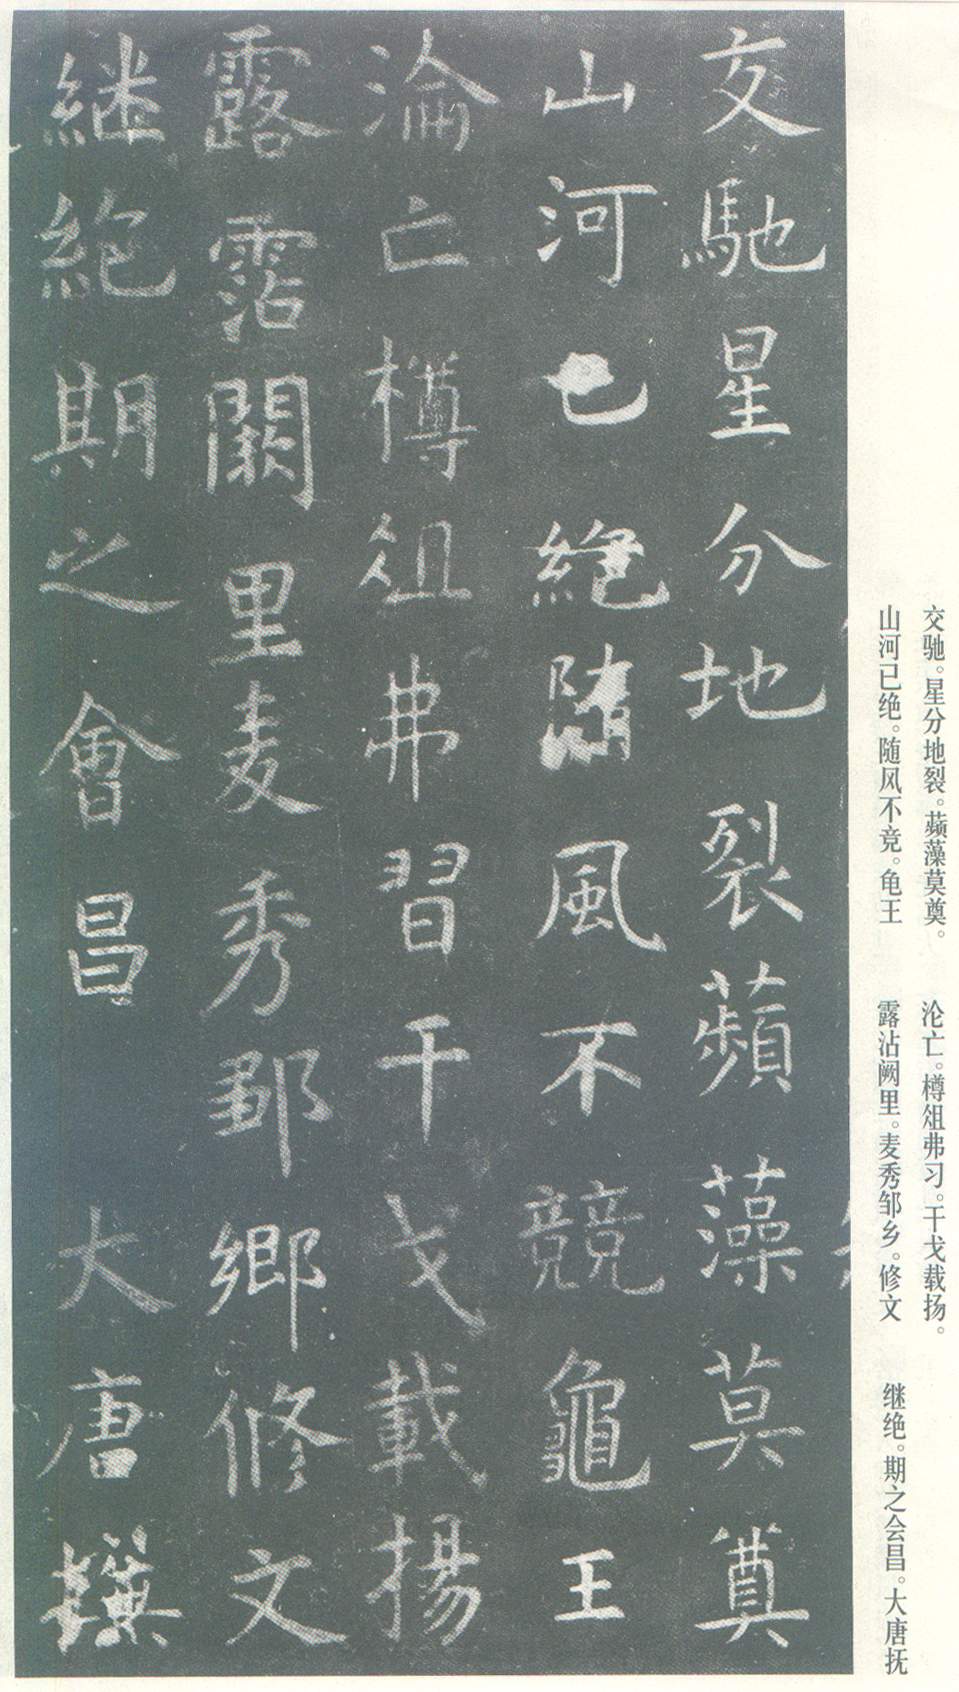 交馳星分地裂蘋藻莫奠
山河已絕隨風不競龜王
淪亡樽俎弗習干戈載揚
露霑闕里麦秀鄒鄉修文
継絕期之會昌 大唐撫
交驰。星分地裂。蘋藻莫奠。
山河已绝。随风不竞。龟王
沦亡。樽俎弗习。干戈载扬。
露沾阙里。麦秀邹乡。修文
继绝。期之会昌。大唐抚